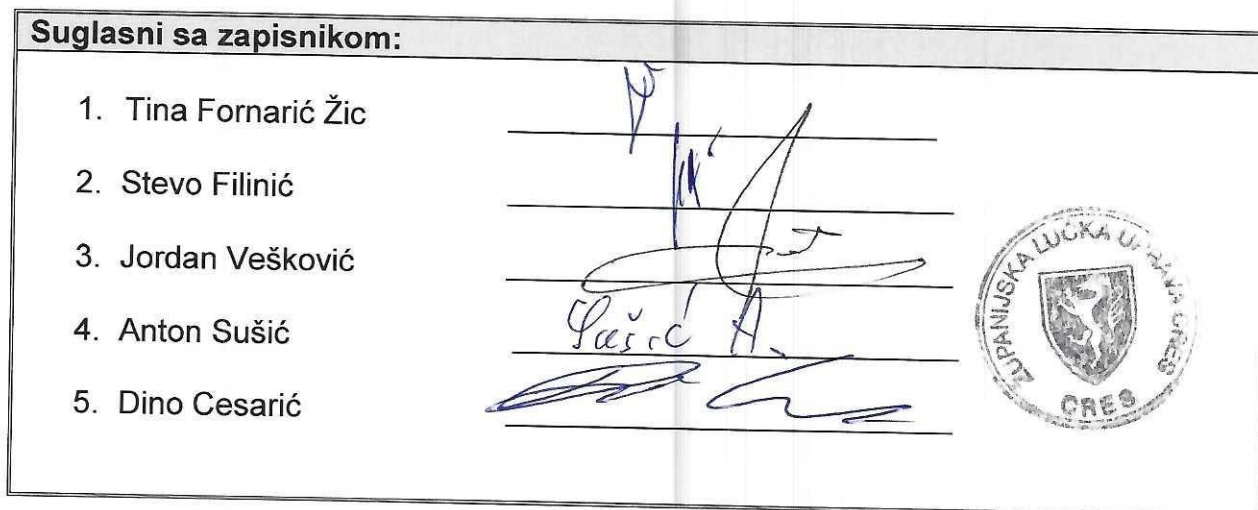 Suglasni sa zapisnikom:
1. Tina Fornarić Žic
2. Stevo Filinić
3. Jordan Vešković
4. Anton Sušić
Sušić A.
5. Dino Cesarić
ŽUPANIJSKA LUČKA UPRAVA CRES
CRES